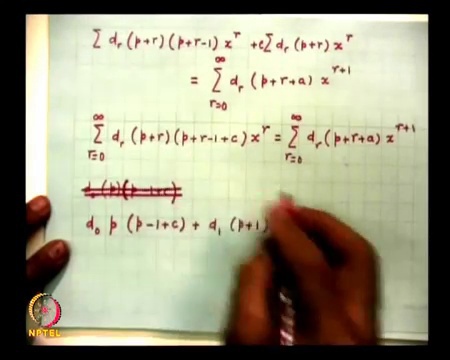 Σ d_r (p+r) (p+r-1) x^r + c Σ d_r (p+r) x^r
= Σ_{r=0}^{∞} d_r (p+r+a) x^{r+1}
Σ_{r=0}^{∞} d_r (p+r) (p+r-1+c) x^r = Σ_{r=0}^{∞} d_r (p+r+a) x^{r+1}
d_0 p (p-1+c) + d_1 (p+1)
NPTEL